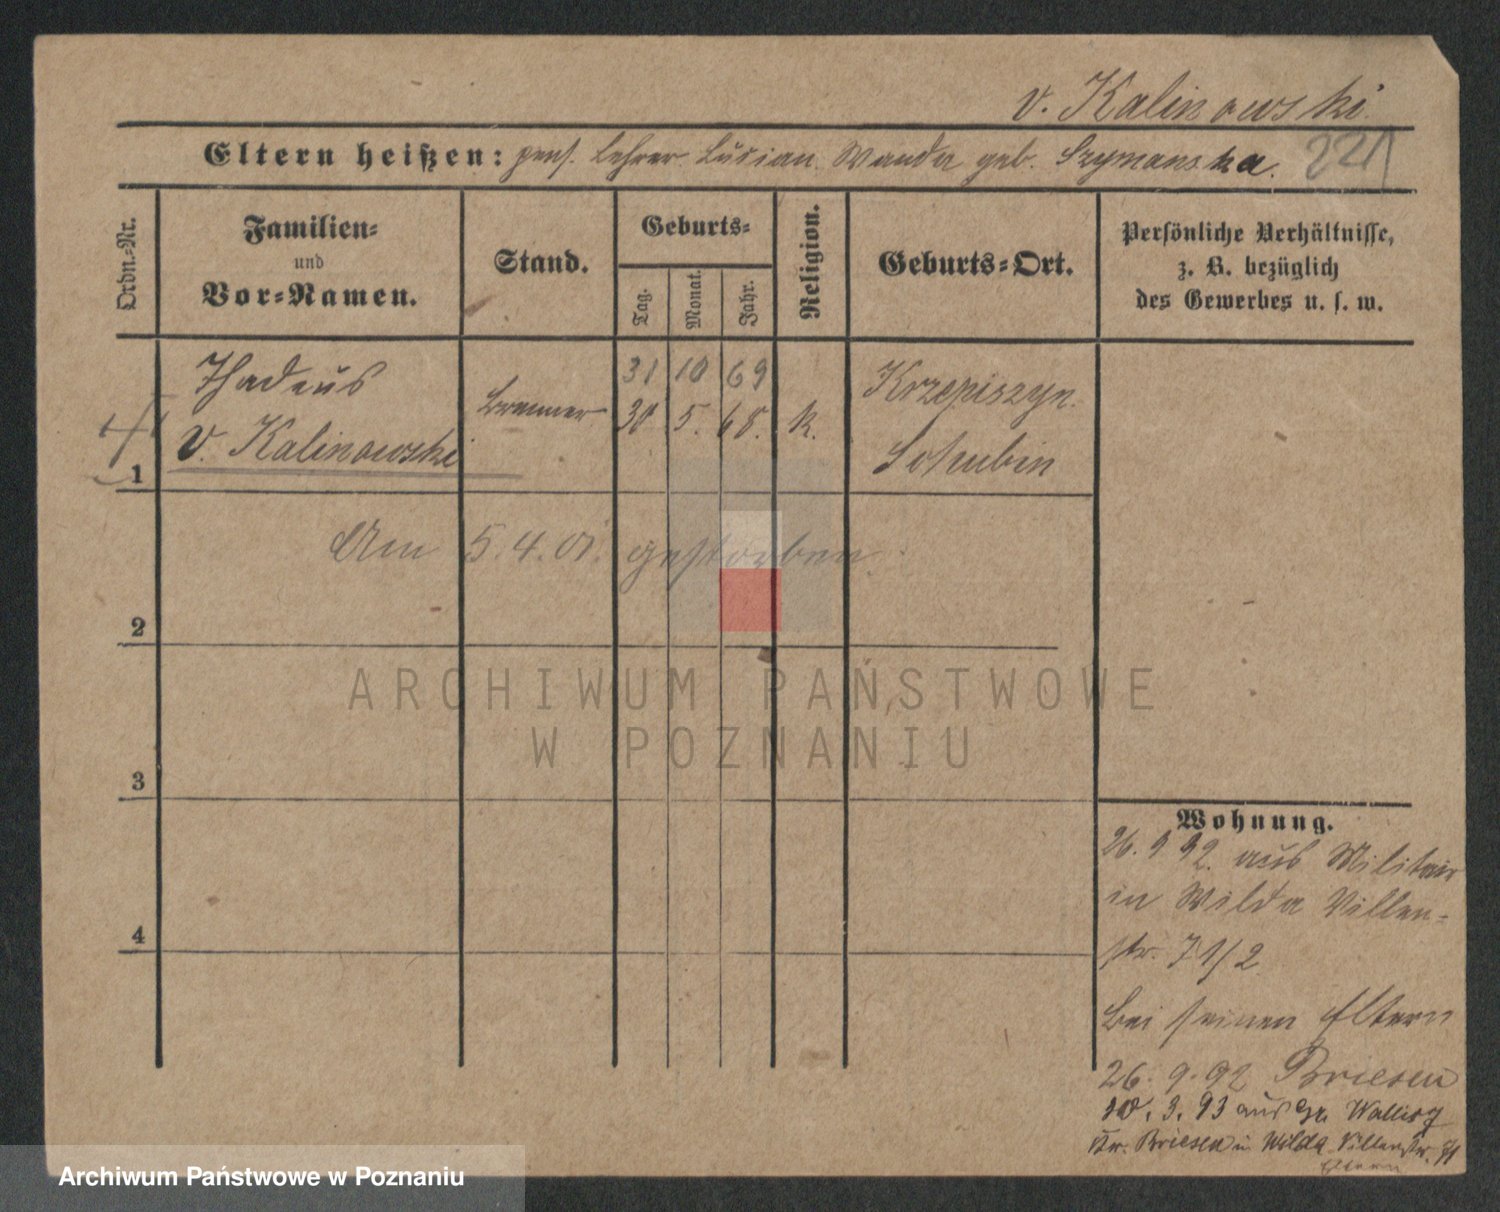 v. Kalinowski.
Eltern heißen: pens. Lehrer Lucian. Wanda geb. Szymanska. 221
Ordn.-Nr.
Familien-
und
Vor-Namen.
Stand.
Geburts-
Tag.
Monat.
Jahr.
Religion.
Geburts-Ort.
Persönliche Verhältnisse,
z. B. bezüglich
des Gewerbes u. s. w.
Thadeus 31 10 69 Krzepiszyn.
v. Kalinowski Brenner 30 5. 68. k. Schubin
1
Am 5.4.01. gestorben.
2
3
4
Wohnung.
26. 9 92. aus Militair
in Wilda Villen-
str. 7 1/2
bei seinen Eltern
26. 9. 92 Briesen
10. 3. 93 aus Gr.
Kr. Briesen in Wilda Villenstr.
Eltern
ARCHIWUM PAŃSTWOWE
W POZNANIU
Archiwum Państwowe w Poznaniu